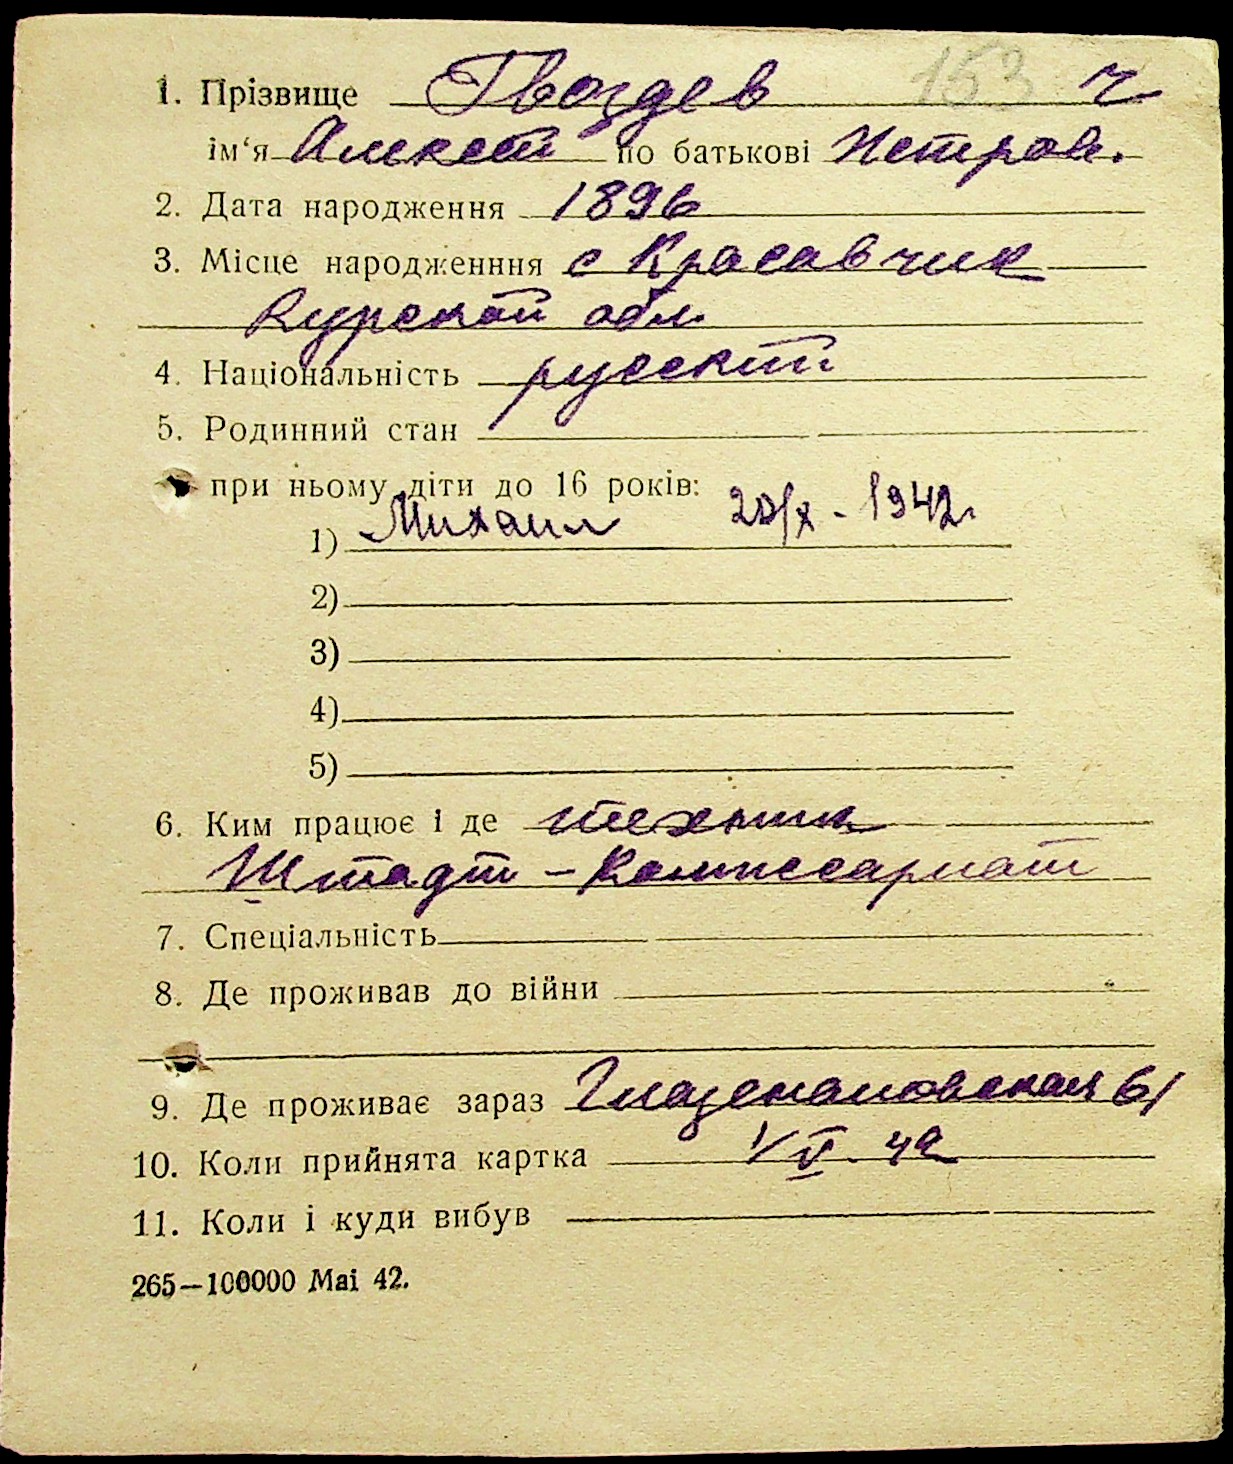 153
1. Прізвище Гвоздев ч
ім‘я Алексей по батькові Петров.
2. Дата народження 1896
3. Місце народженння с Красавчик
Курской обл.
4. Національність русский
5. Родинний стан
при ньому діти до 16 років:
1) Михаил 20/X - 1942г.
2)
3)
4)
5)
6. Ким працює і де техник
Штадт - Комиссариат
7. Спеціальність
8. Де проживав до війни
9. Де проживає зараз Глазенаповская 61
10. Коли прийнята картка 1/V - 42
11. Коли і куди вибув
265—100000 Mai 42.